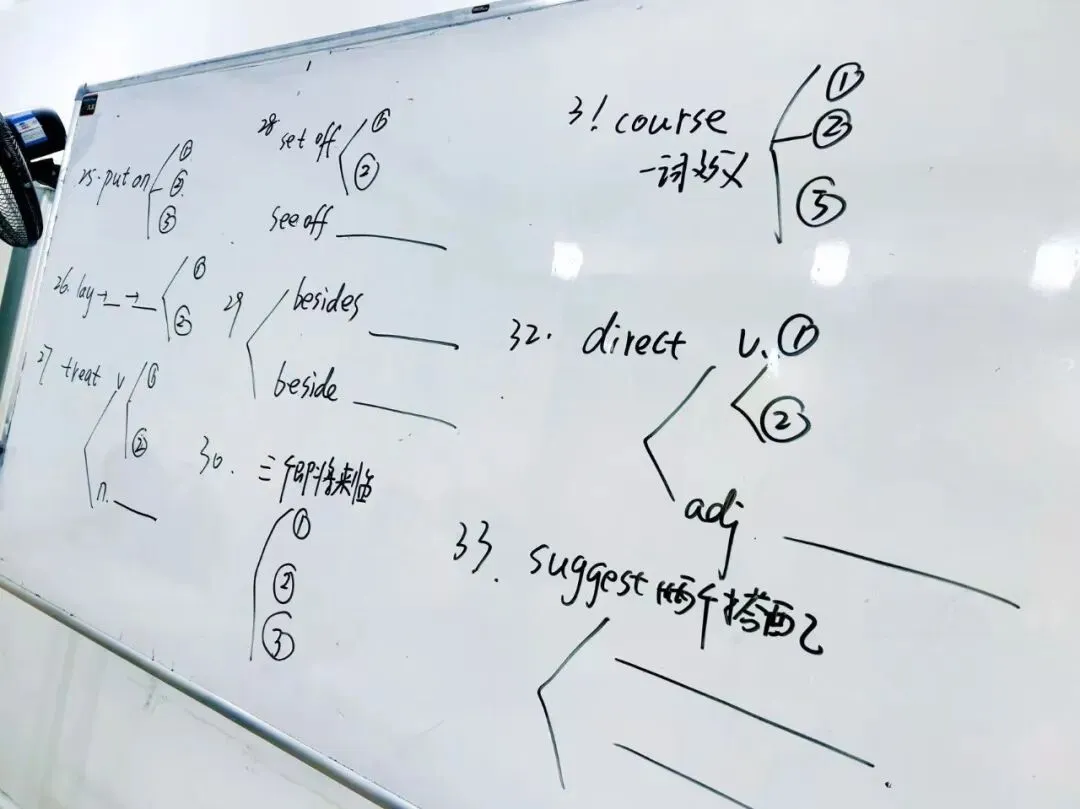 25. put on ①
②
③
26. lay → __ → __ ①
②
27 treat v ①
②
n. ____
28 set off ①
②
see off ____
29 besides ____
beside ____
30. 三个即将来临
①
②
③
31 course ①
一词多义 ②
③
32. direct v. ①
②
adj ____
33. suggest 两个搭配